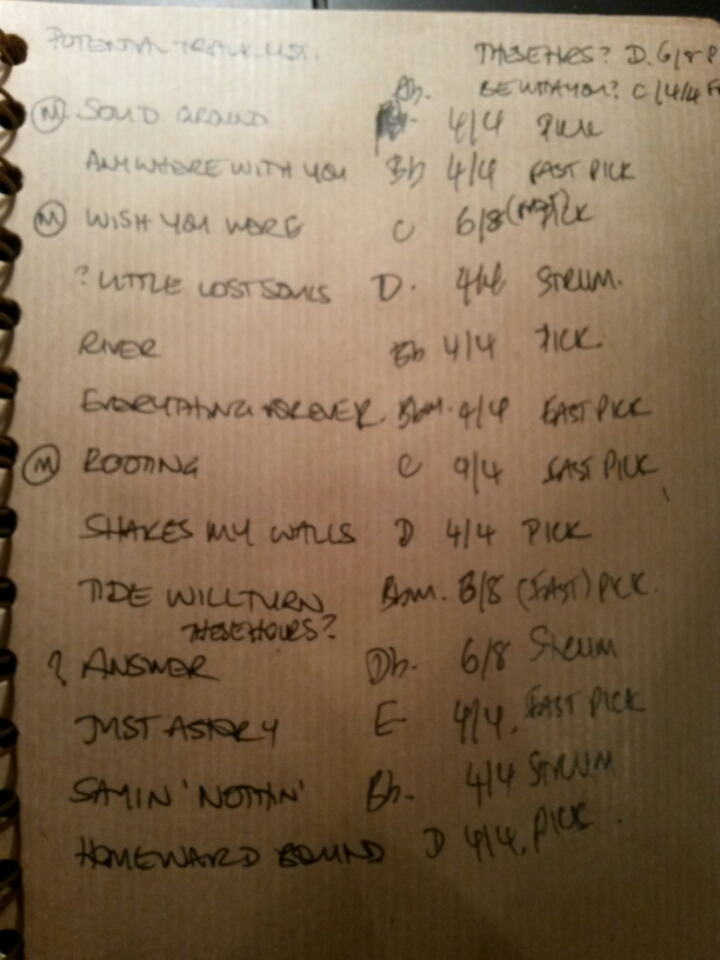 POTENTIAL TRACK LIST.
THESE HRS? D. 6/8 P
BE WITH YOU? C/4/4 F
Ⓜ SOLID GROUND Ab. 4/4 PICK
ANYWHERE WITH YOU Bb 4/4 FAST PICK
Ⓜ WISH YOU WERE C 6/8 (FAST) PICK
? LITTLE LOST SOULS D. 4/4 STRUM.
RIVER Bb 4/4 PICK
EVERYTHING FOREVER. Bbm. 4/4 FAST PICK
Ⓜ ROOTING C 4/4 FAST PICK
SHAKES MY WALLS D 4/4 PICK
TIDE WILL TURN Bbm. 6/8 (FAST) PICK.
THESE HOURS?
? ANSWER Db. 6/8 STRUM
JUST A STORY E 4/4, FAST PICK
SAYIN 'NOTHIN' Bb. 4/4 STRUM
HOMEWARD BOUND D 4/4, PICK.